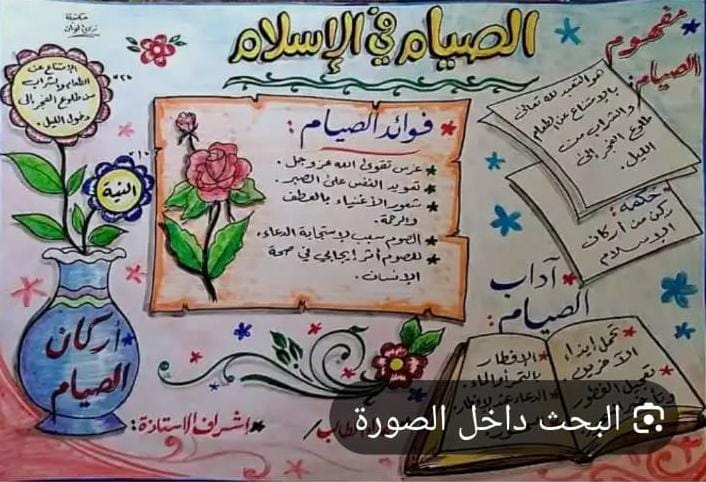 الصيام في الإسلام
مفهوم
الصيام:
هو التعبد لله تعالى
بالامتناع عن الطعام
والشراب من
طلوع الفجر إلى
الليل.
حكمه:
ركن من أركان
الإسلام
فوائد الصيام:
غرس تقوى الله عز وجل.
تعويد النفس على الصبر.
شعور الأغنياء بالعطف
والرحمة.
الصوم سبب لاستجابة الدعاء.
للصوم أثر إيجابي في صحة
الإنسان.
الإمتناع عن
الطعام والشراب
من طلوع الفجر إلى
دخول الليل.
النية
أركان
الصيام
آداب
الصيام:
تحمل إيذاء
الآخرين.
تعجيل الفطور
الإفطار
بالتمر أو الماء.
الدعاء عند الإفطار
إشراف الأستاذة:
البحث داخل الصورة